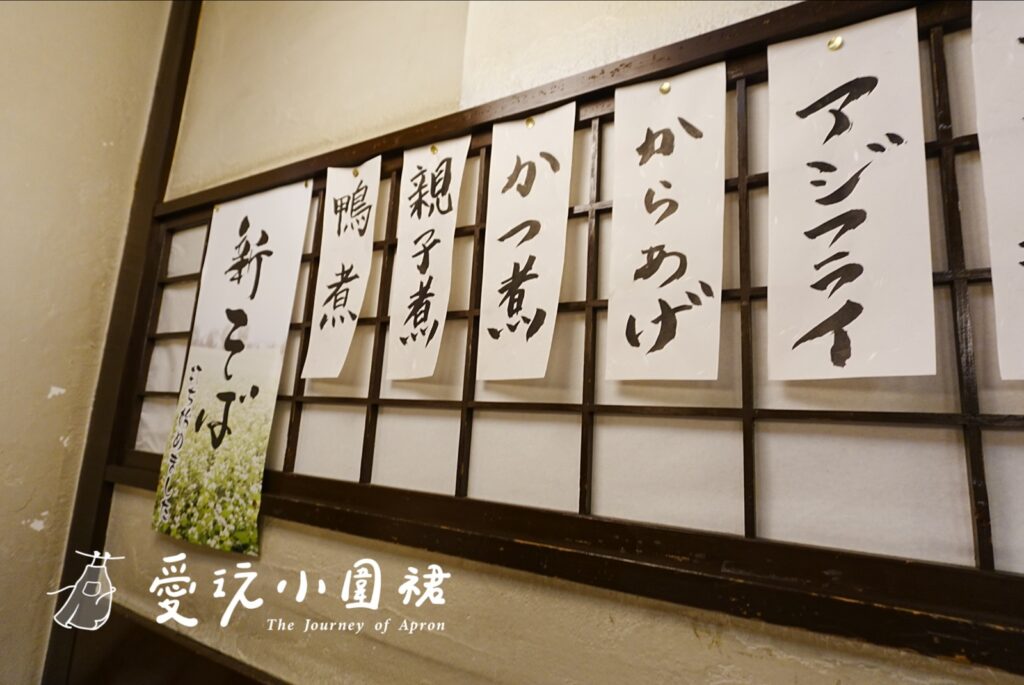 アジフライ
からあげ
かつ煮
親子煮
鴨煮
新そば
はじめました
愛玩小圍裙
The Journey of Apron